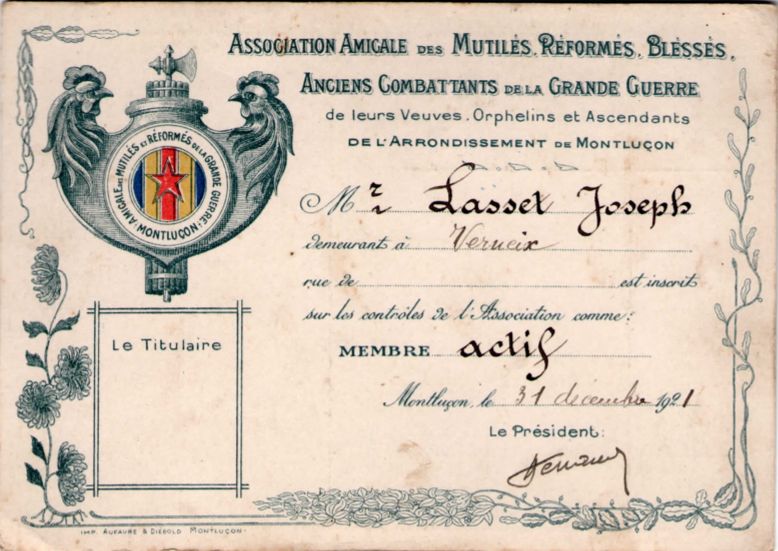 ASSOCIATION AMICALE DES MUTILÉS, RÉFORMÉS, BLESSÉS,
ANCIENS COMBATTANTS DE LA GRANDE GUERRE
de leurs Veuves, Orphelins et Ascendants
DE L'ARRONDISSEMENT DE MONTLUÇON
AMICALE DES MUTILÉS ET RÉFORMÉS DE LA GRANDE GUERRE
MONTLUÇON
Mr Lasset Joseph
demeurant à Verneix
rue de est inscrit
sur les contrôles de l'Association comme:
MEMBRE actif
Montluçon, le 31 décembre 1921
Le Président:
Le Titulaire
IMP. AUFAURE & DIÉBOLD MONTLUÇON